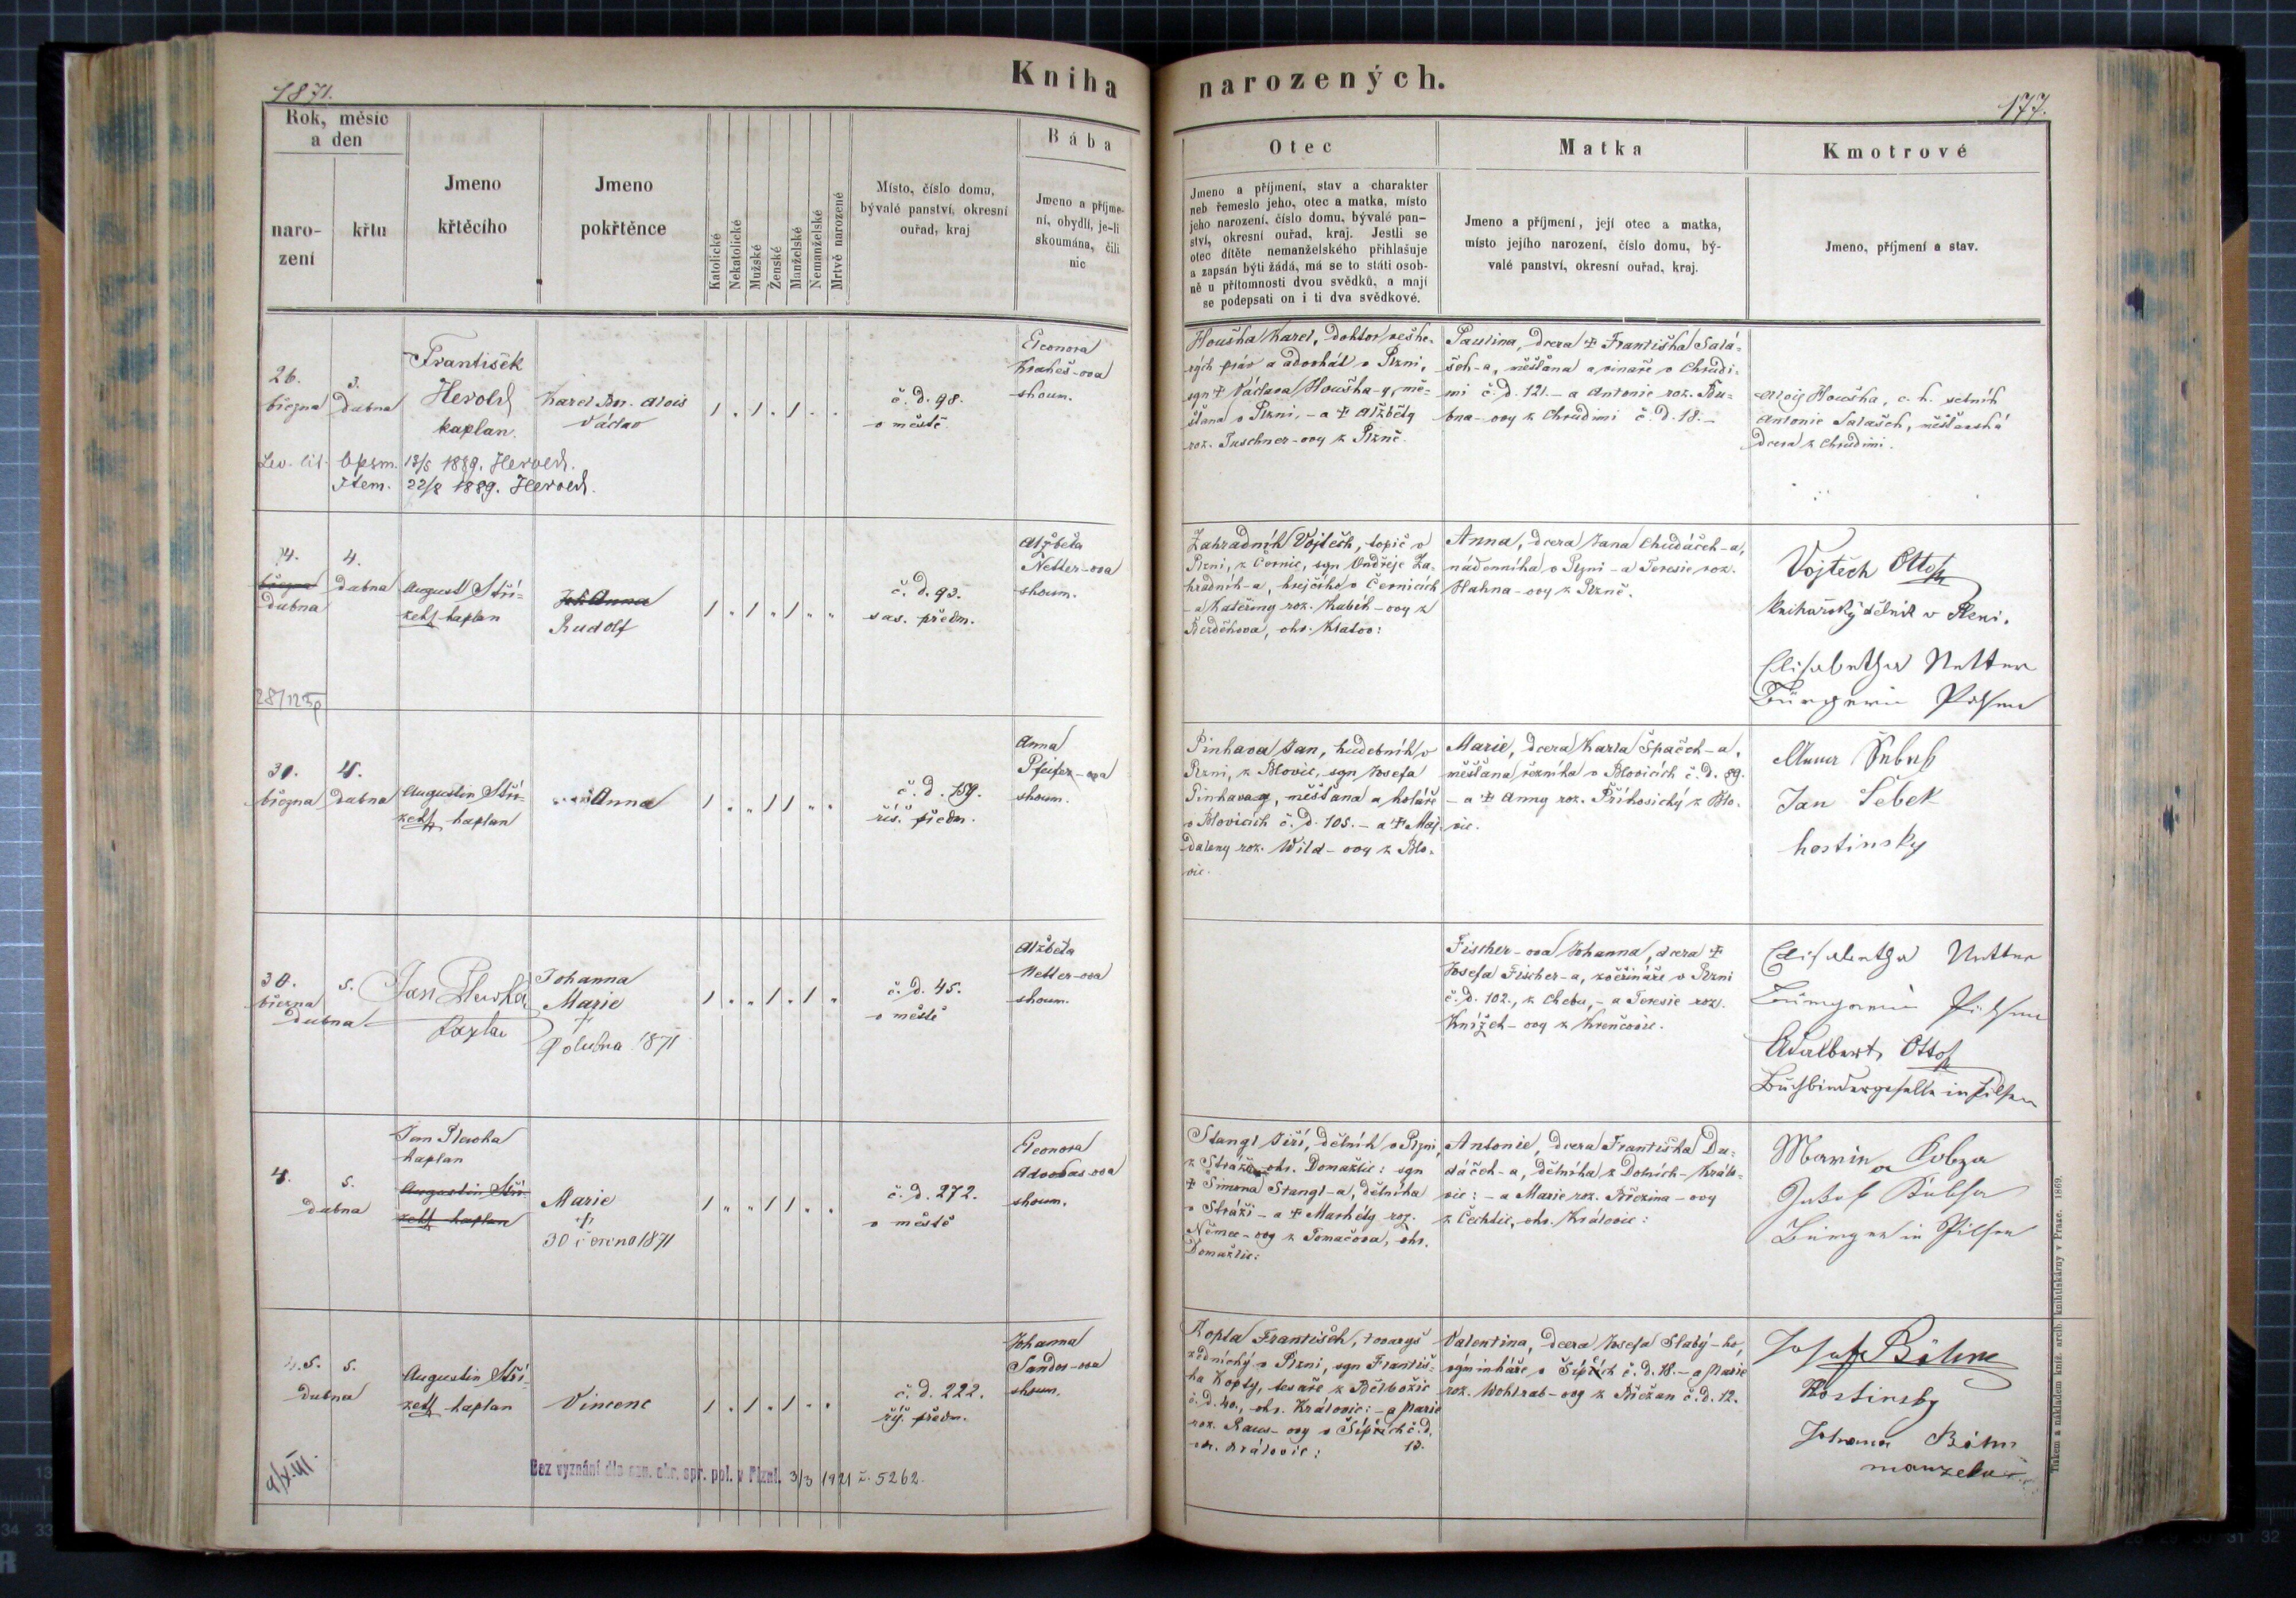 1871.
Kniha narozených.
177.
Rok, měsíc
a den
naro-
zení
křtu
Jmeno
křtěcího
Jmeno
pokřtěnce
Katolické
Nekatolické
Mužské
Ženské
Manželské
Nemanželské
Mrtvě narozené
Místo, číslo domu,
bývalé panství, okresní
ouřad, kraj
Bába
Jmeno a příjme-
ní, obydlí, je-li
skoumána, čili
nic
Otec
Jmeno a příjmení, stav a charakter
neb řemeslo jeho, otec a matka, místo
jeho narození, číslo domu, bývalé pan-
ství, okresní ouřad, kraj. Jestli se
otec dítěte nemanželského přihlašuje
a zapsán býti žádá, má se to státi osob-
ně u přítomnosti dvou svědků, a mají
se podepsati on i ti dva svědkové.
Matka
Jmeno a příjmení, její otec a matka,
místo jejího narození, číslo domu, bý-
valé panství, okresní ouřad, kraj.
Kmotrové
Jmeno, příjmení a stav.
26.
března
3.
dubna
František
Herold
kaplan.
Karel Alois
Václav
č. d. 98.
v městě
Eleonora
skoum.
Houška Karel, doktor veške-
rých práv a advokát v Plzni,
syn † Václava Houška-y, mě-
šťana v Plzni, - a † Alžběty
roz. Tuschner-ovy z Plzně.
Paulina, dcera † Františka Salá-
šek-a, měšťana a vináře v Chrudi-
mi č. d. 121. - a Antonie roz. Bu-
bna-ovy z Chrudimi č. d. 18. -
Alois Houška, c. k. setník
Antonie Salašek, měšťanská
dcera z Chrudimi.
Lev. lit. Opsm. 13/5 1889. Herold.
Item. 22/8 1889. Herold.
4.
března
dubna
4.
dubna
August Stří-
zek kaplan
Anna
Rudolf
č. d. 93.
sas. předm.
Alžběta
Netter-ova
skoum.
Zahradník Vojtěch, topič v
Plzni, z Černic, syn Ondřeje Za-
hradník-a, krejčího v Černicích
- a Kateřiny roz. Kubík-ovy z
Bezděkova, okr. Klatov:
Anna, dcera Jana Chudáček-a,
nádenníka v Plzni - a Teresie roz.
Hahna-ovy z Plzně.
Vojtěch Otto
knihařský dělník v Plzni.
Elisabetha Netter
Bürgerin Pilsen
30.
března
4.
dubna
Augustin Stří-
zek kaplan
Anna
č. d. 159.
říš. předm.
Anna
Pfeifer-ova
skoum.
Pinhava Jan, hudebník v
Plzni, z Blovic, syn Josefa
Pinhavay, měšťana a koláře
v Blovicích č. d. 105. - a † Maj-
daleny roz. Wild-ovy z Blo-
vic.
Marie, dcera Karla Špaček-a,
měšťana řezníka v Blovicích č. d. 89.
- a † Anny roz. Příkosický z Blo-
vic.
Anna Šebek
Jan Šebek
hostinsky
30.
března
dubna
5.
Jan Plevka
kaplan
Johanna
Marie
†
dubna 1871
č. d. 45.
v městě
Alžběta
Netter-ova
skoum.
Fischer-ova Johanna, dcera †
Josefa Fischer-a, zvěřináře v Plzni
č. d. 102., z Chebu, - a Teresie roz.
Knížek-ovy z Krenčovic.
Elisabetha Netter
Bürgerin Pilsen
Adalbert Otto
Buchbindergeselle in Pilsen
4.
dubna
5.
Jan Plevka
kaplan
Augustin Stří-
zek kaplan
Marie
†
30 června 1871
č. d. 272.
v městě
Eleonora
skoum.
Stangl Jiří, dělník v Plzni,
z Stráže okr. Domažlic: syn
† Šimona Stangl-a, dělníka
v Stráži - a † Markéty roz.
Němec-ovy z Tomačova, okr.
Domažlic:
Antonie, dcera Františka Du-
dáček-a, dělníka z Dolních-Králo-
vic: - a Marie roz. Březina-ovy
z Čechtic, okr. Královic:
Marie Kobza
Jakob
Bürger in Pilsen
4. 5.
dubna
5.
Augustin Stří-
zek kaplan
Vincenc
č. d. 222.
říš. předm.
Johanna
Sandos-ova
skoum.
Kopta František, tovaryš
zednický v Plzni, syn Františ-
ka Kopty, tesaře z Bělbožic
č. d. 40., okr. Královic: - a Marie
roz. Raus-ovy v Šípřích č. d.
okr. Královic: 13.
Valentina, dcera Josefa Slabý-ho,
výminkáře v Šípřích č. d. 18. - a Marie
roz. Wohlrab-ovy z Břežan č. d. 12.
Josef Böhm
Hostinsky
Johana Böhm
manzelka
Bez vyznání dle ozn. okr. spr. pol. v Plzni. 3/3 1921 č. 5262.
Tiskem a nákladem kníž. arcib. knihtiskárny v Praze. 1869.